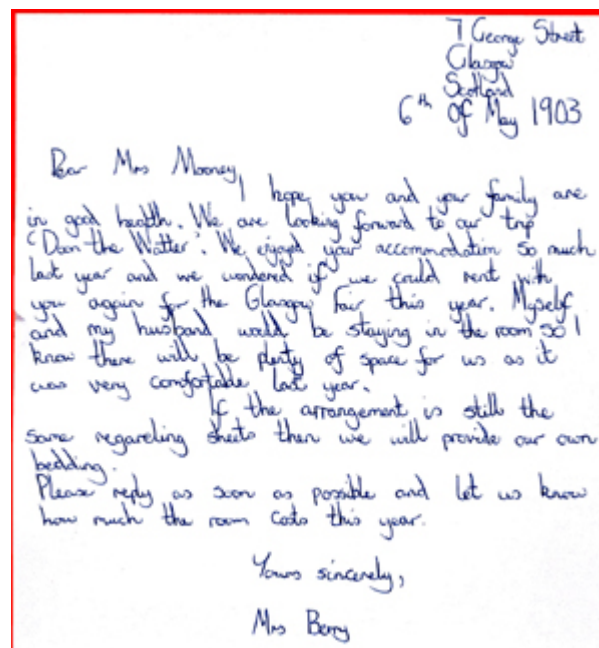 7 George Street
Glasgow
Scotland
6th Of May 1903
Dear Mrs Mooney,
I hope you and your family are
in good health. We are looking forward to our trip
'Doon the Watter'. We enjoyed your accommodation so much
last year and we wondered if we could rent with
you again for the Glasgow Fair this year. Myself
and my husband would be staying in the room so I
know there will be plenty of space for us as it
was very comfortable last year.
If the arrangement is still the
same regarding sheets then we will provide our own
bedding.
Please reply as soon as possible and let us know
how much the room costs this year.
Yours sincerely,
Mrs Berry